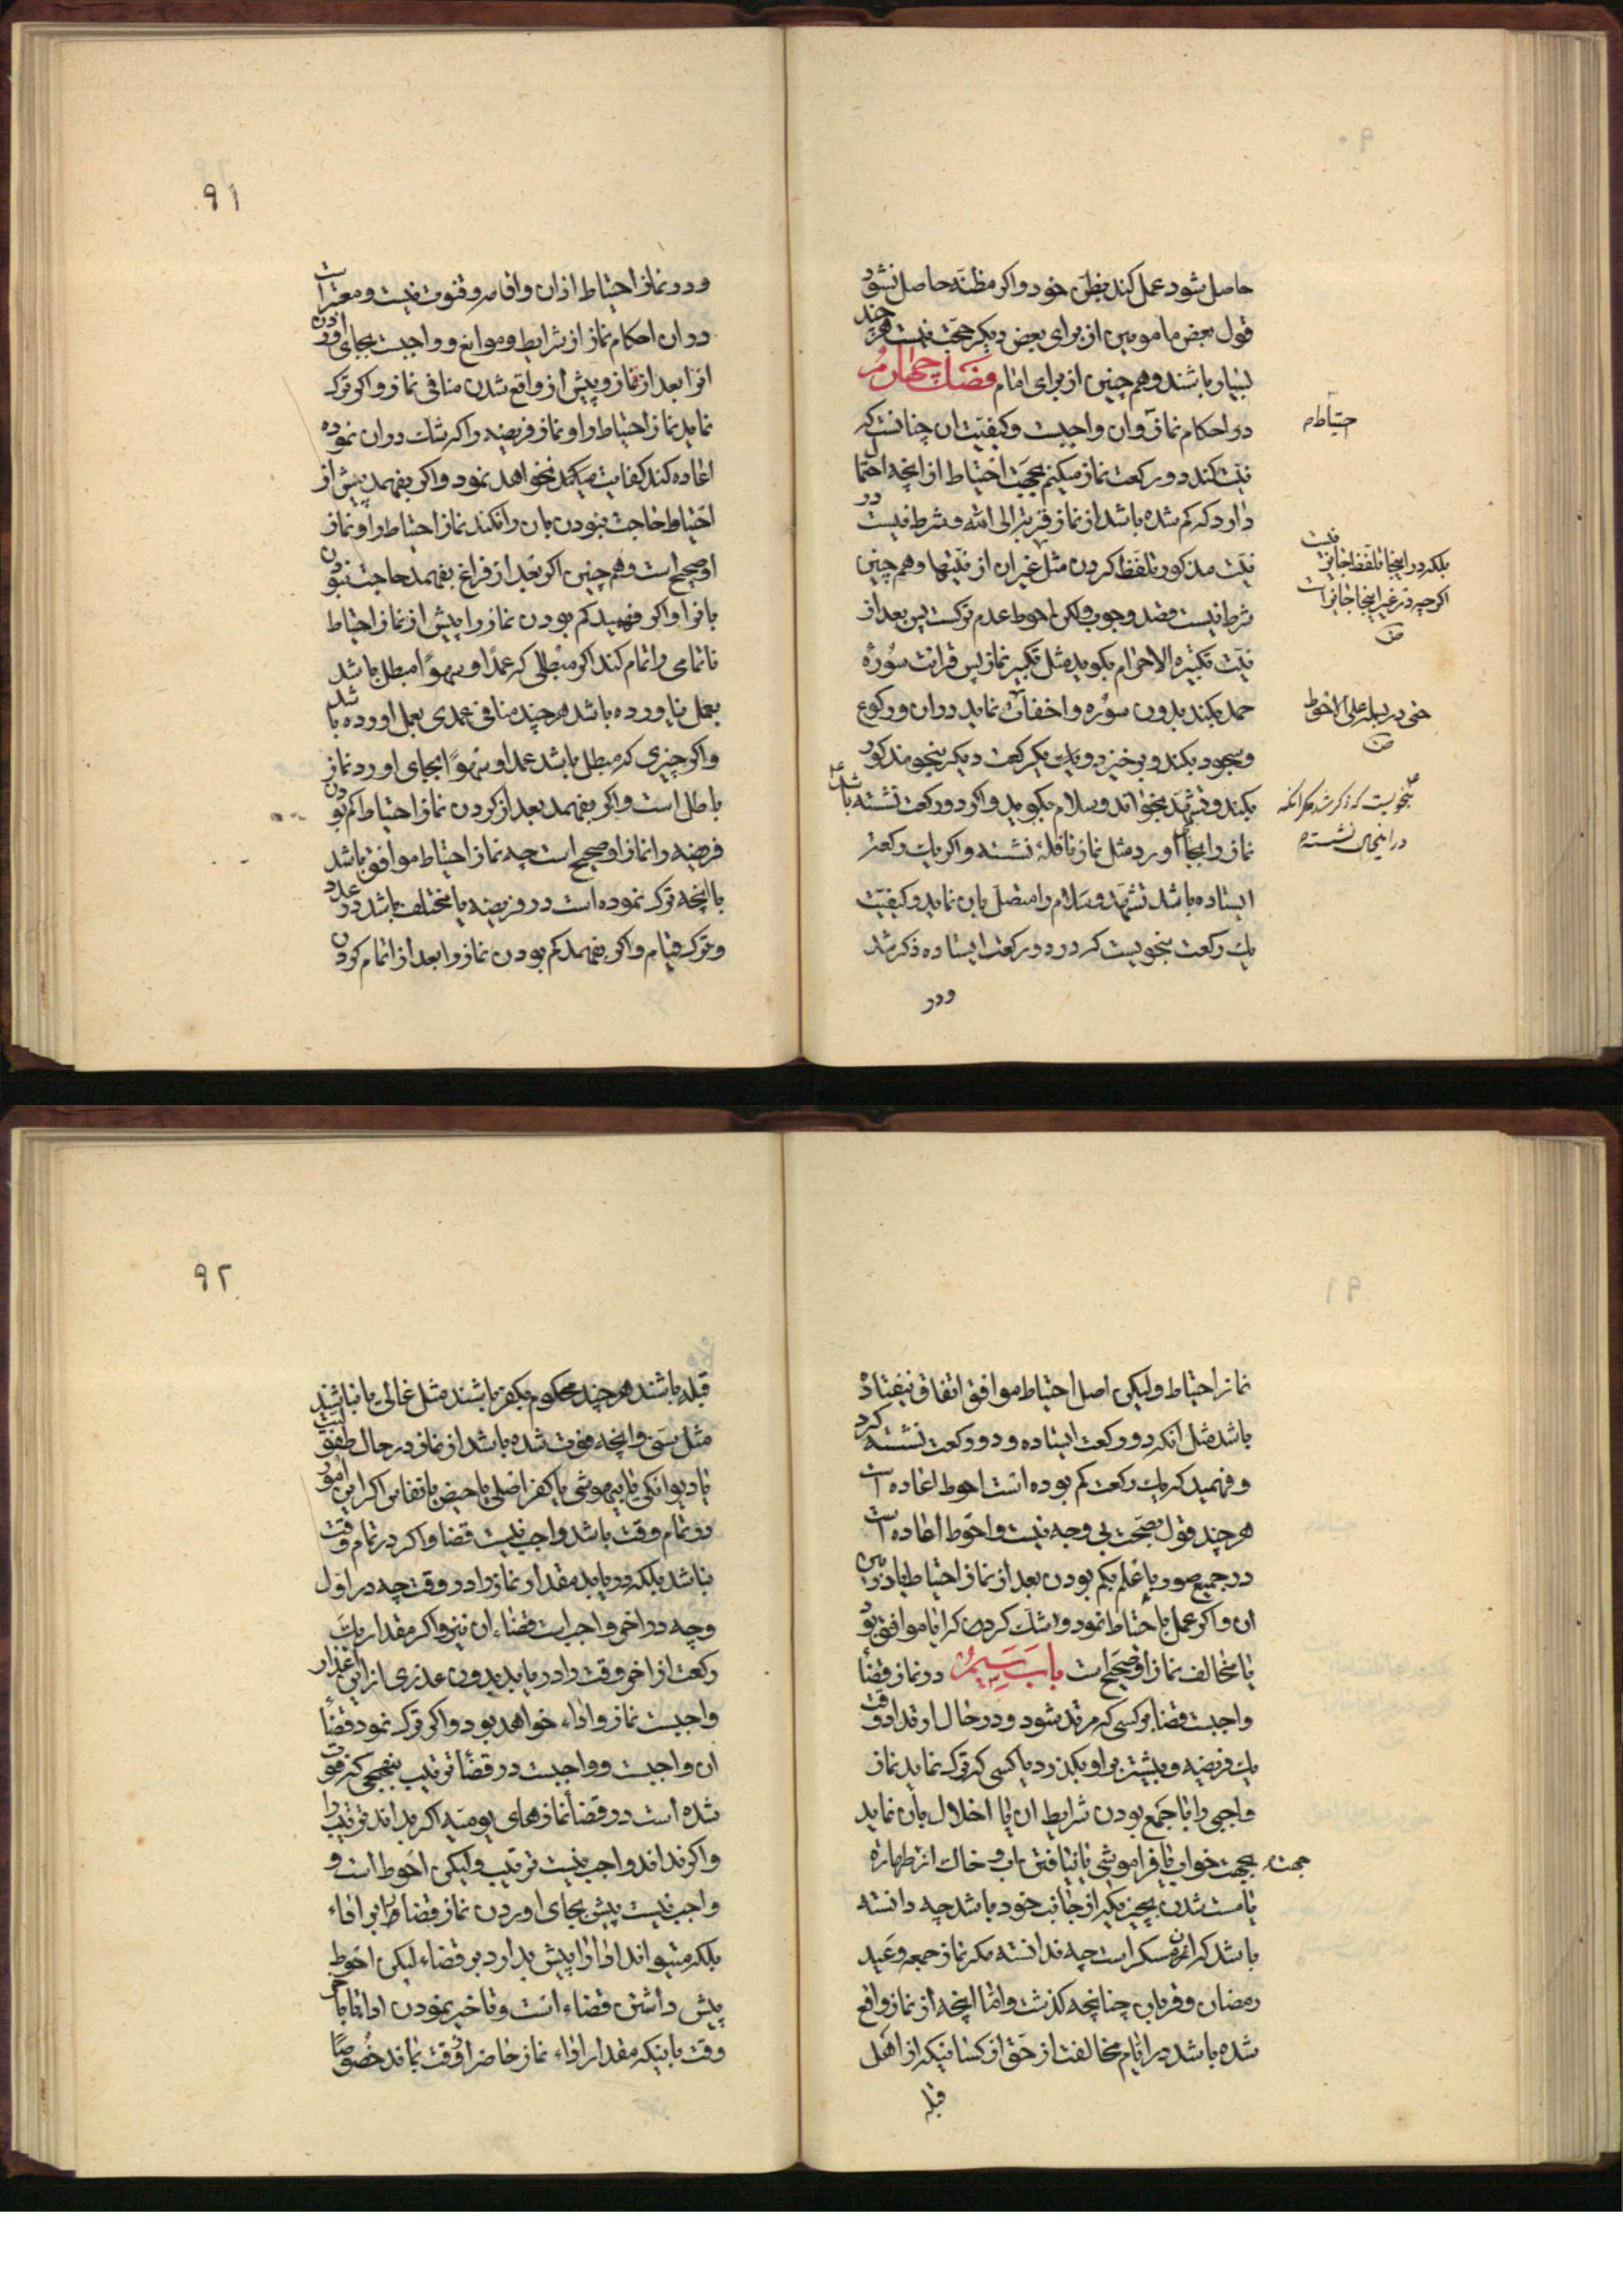 حاصل شود عمل کند بظن خود و اکر مظنه حاصل نشود
قول بعض مامومین از برای بعض دیکر حجت نیست هر چند
بسیار باشند و هم چنین از برای امام فصل چهارم
در احکام نماز و ان واجبست و کیفیت ان چنانست که
نیت کند دو رکعت نماز میکنم بجهت احتیاط از انچه احتمال
دارد که کم شده باشد از نماز قربة الی الله و شرط نیست در
نیت مذکور تلفظ کردن مثل غیر ان از نیتها و هم چنین
شرط نیست قصد وجوب ولکن احوط عدم ترکست پس بعد از
نیت تکبیرة الاحرام بکوید مثل تکبیر نماز پس قرائت سوره
حمد بکند بدون سوره و اخفات نماید در ان و رکوع
و سجود بکند و برخیزد و یک رکعت دیکر بنحو مذکور
بکند و تشهد بخواند و سلام بکوید و اکر دو رکعت نشسته باشد
نماز را بجا اورد مثل نماز نافلۀ نشسته و اکر یک رکعت
ایستاده باشد تشهد و سلام را متصل بان نماید و کیفیت
یک رکعت بنحویست که در دو رکعت ایستاده ذکر شد
و در
احتیاط م
بلکه در اینجا تلفظ جایز نیست
اکر چه در غیر اینجا جایز است
ص
حتی در بسمله علی الاحوط
ص
بنحویست که ذکر شد مکر انکه
در اینجا نشسته
۹۱
و در نماز احتیاط اذان و اقامه و قنوت نیست و معتبر است
در ان احکام نماز از شرایط و موانع و واجبست بجای اوردن
انرا بعد از نماز و پیش از واقع شدن منافی نماز و اکر ترک
نماید نماز احتیاط را و نماز فریضه را که شک در ان نموده
اعاده کند کفایت میکند نخواهد نمود و اکر بفهمد پیش از
احتیاط حاجت نبودن بان را نکند نماز احتیاط را و نماز
او صحیح است و هم چنین اکر بعد از فراغ بفهمد حاجت نبودن
بانرا و اکر فهمید کم بودن نماز را پیش از نماز احتیاط
ناتمامی را تمام کند اکر مبطلی که عمدا و سهوا مبطل باشد
بعمل نیاورده باشد هر چند منافی عمدی بعمل اورده باشد
و اکر چیزی که مبطل باشد عمدا و سهوا بجای اورد نماز
باطل است و اکر بفهمد بعد از کردن نماز احتیاط کم بودن
فریضه را نماز او صحیح است چه نماز احتیاط موافق باشد
با انچه ترک نموده است در فریضه یا مختلف باشد در عدد
و ترک قیام و اکر بفهمد کم بودن نماز را بعد از اتمام کردن
نماز احتیاط و لیکن اصل احتیاط موافق اتفاق نیفتاده
باشد مثل انکه دو رکعت ایستاده و دو رکعت نشسته کرد
و فهمید که یک رکعت کم بوده است احوط اعاده است
هر چند قول بصحت بی وجه نیست و احوط اعاده است
در جمیع صور با علم بکم بودن بعد از نماز احتیاط یا در بین
ان و اکر عمل باحتیاط نمود و شک کرد که ایا موافق بود
یا مخالف نماز او صحیح است باب سیم در نماز قضأ
واجبست قضا بر کسی که مرتد شود و در حال ارتداد وقت
یک فریضه و بیشتر بر او بکذرد یا کسی که ترک نماید نماز
واجبی را با جمع بودن شرایط ان یا اخلال بان نماید
بجهت خواب یا فراموشی یا نیافتن اب و خاک از طهارة
جهت م
یا مست شدن بچیزیکه از جانب خود باشد چه دانسته
باشد که ان مسکر است چه ندانسته مکر نماز جمعه و عید
رمضان و قربان چنانچه کذشت و اما انچه از نماز واقع
شده باشد در ایام مخالفت از حق از کسانیکه از اهل
قبله
۹۲
قبله باشند هر چند محکوم بکفر باشند مثل غالی یا نباشند
مثل سنی و انچه فوت شده باشد از نماز در حال طفولیت
یا دیوانکی یا بیهوشی یا کفر اصلی یا حیض یا نفاس اکر این امور
در تمام وقت باشد واجب نیست قضا و اکر در تمام وقت
نباشد بلکه دریابد مقدار نماز را در وقت چه در اول
و چه در اخر واجب است قضاء ان نیز و اکر مقدار یک
رکعت از اخر وقت را دریابد بدون عذری از این اعذار
واجبست نماز و اداء خواهد بود و اکر ترک نمود قضأ
ان واجبست و واجبست در قضأ ترتیب بنهجی که فوت
شده است در قضأ نمازهای یومیه اکر بداند ترتیب را
و اکر نداند واجب نیست ترتیب و لیکن احوط است و
واجب نیست پیش بجای اوردن نماز قضا بر اداء
بلکه میتواند ادا را پیش بدارد بر قضاء لیکن احوط
پیش داشتن قضاء است و تاخیر نمودن ادا تا باخر
وقت باینکه مقدار اداء نماز حاضر از وقت بماند خصوصا